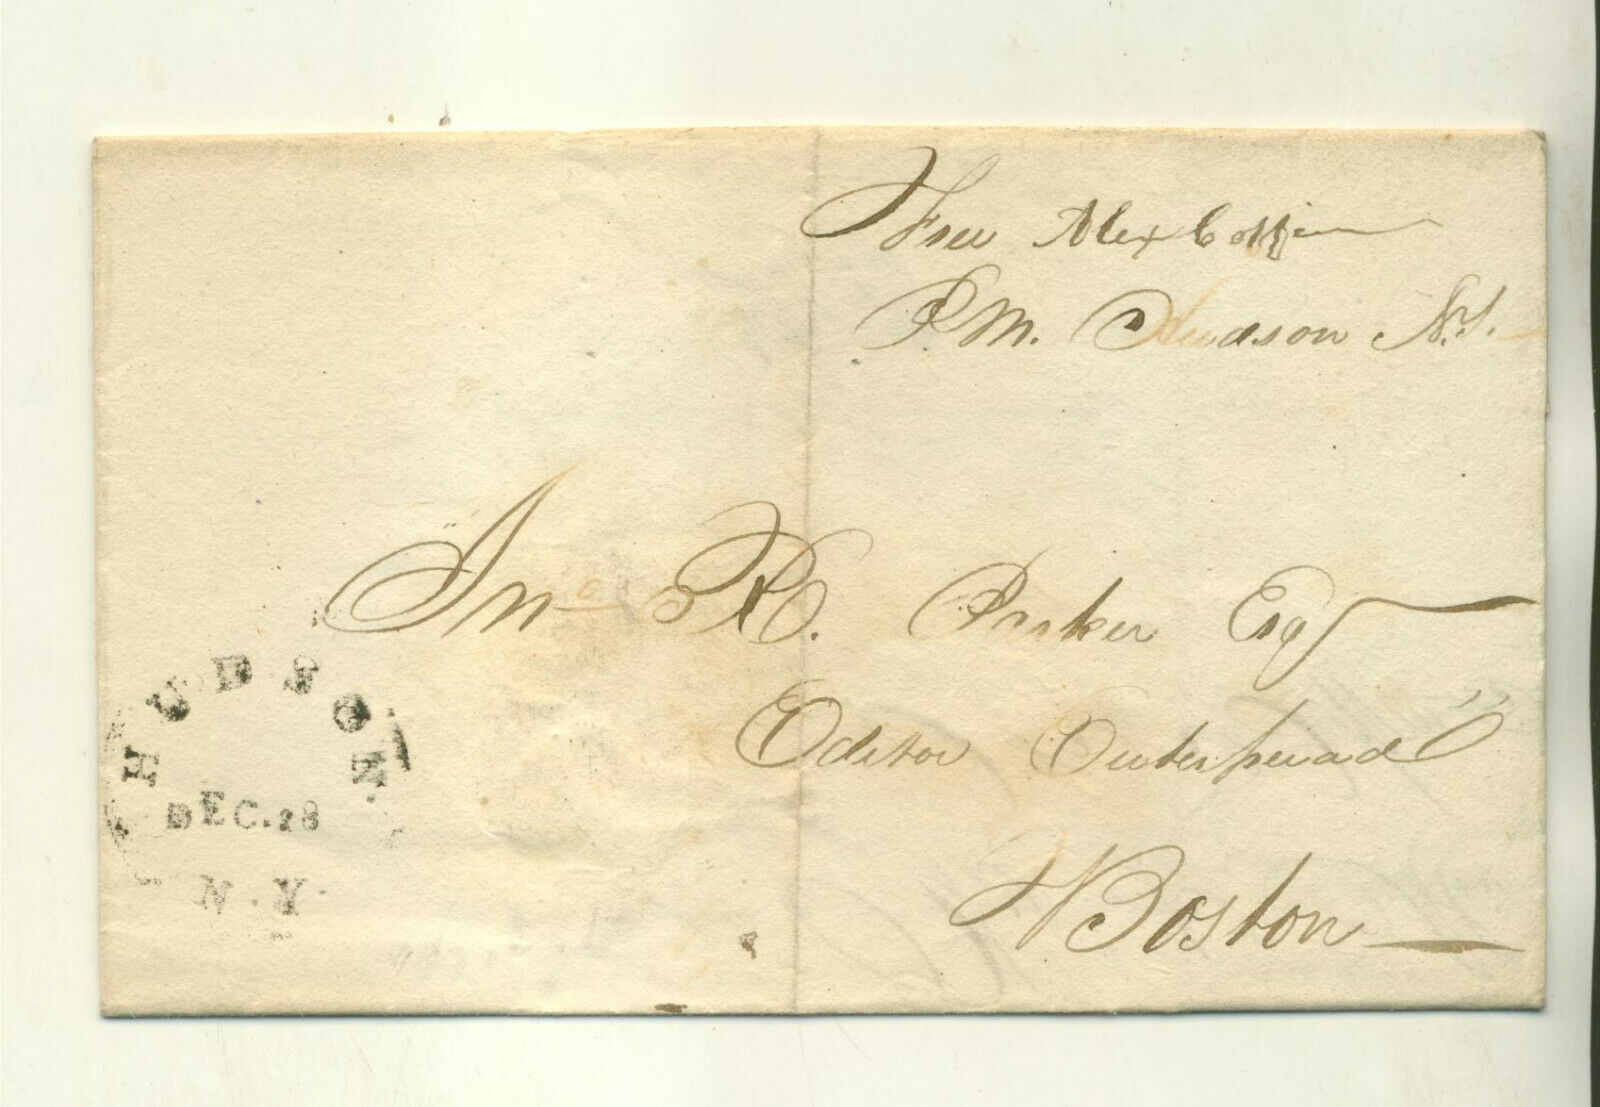 Free Alex Coffin
P.M. Hudson N.Y.
Jno R. Parker Esq
Editor Euterpeiad
Boston
HUDSON
DEC. 28
N.Y.